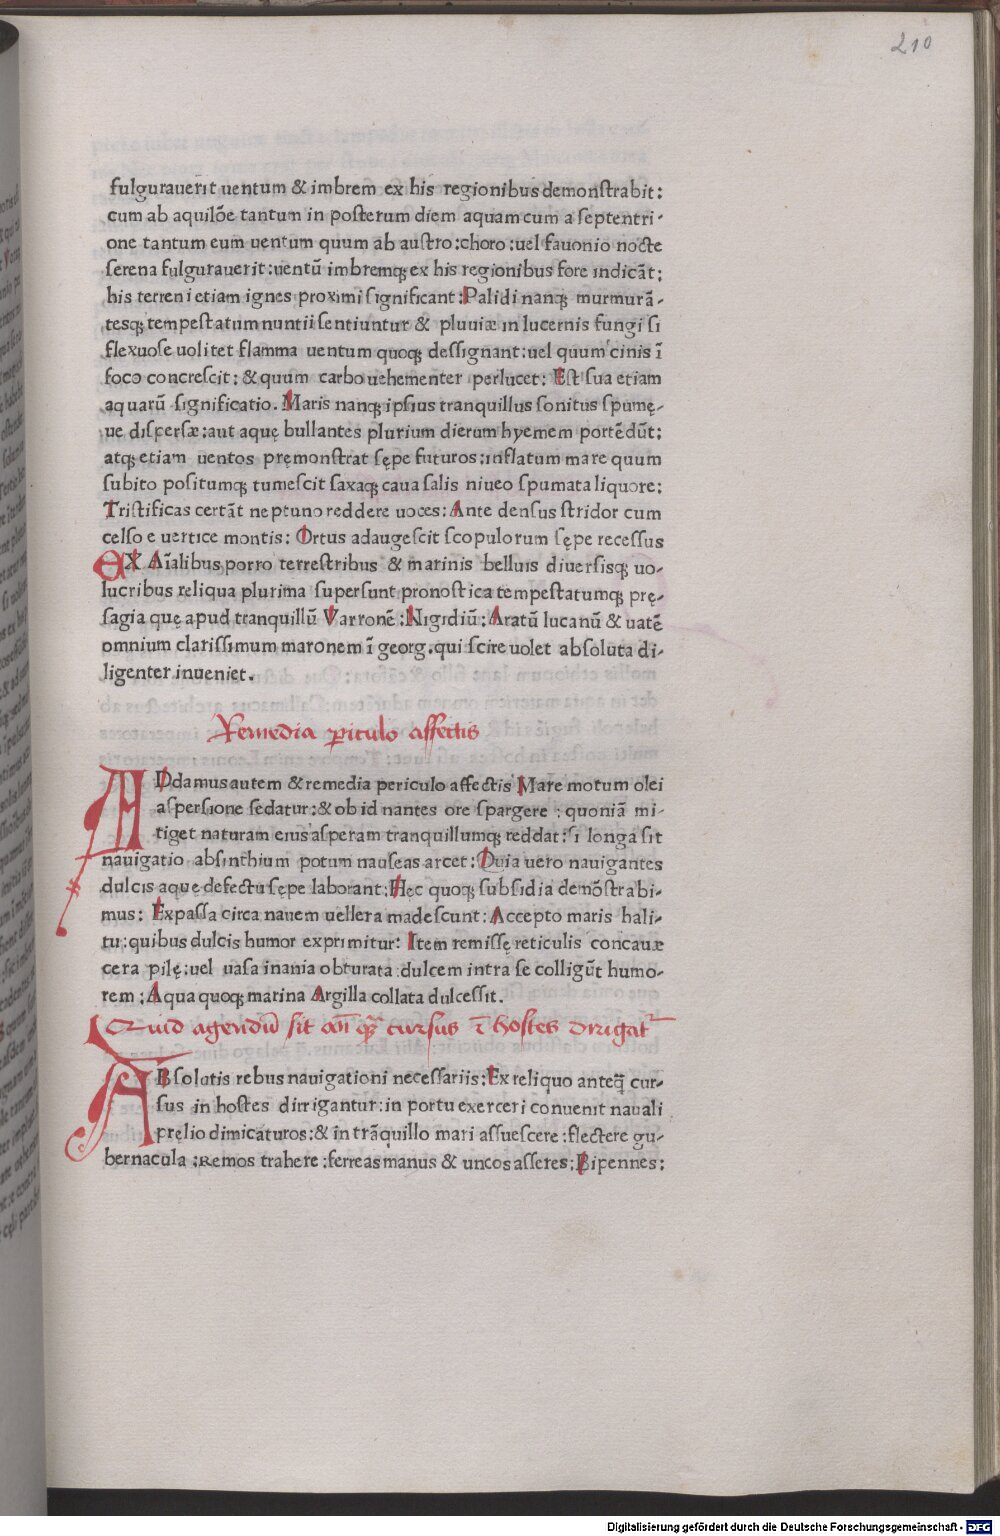 210
fulgurauerīt uentum & imbrem ex his regionibus demonſtrabit:
cum ab aquilōe tantum in poſterum diem aquam cum a ſeptentri-
one tantum eum uentum quum ab auſtro:choro:uel fauonio nocte
ſerena fulgurauerit:uentū imbremqꝫ ex his regionibus fore indicāt:
his terreni etiam ignes proximi ſignificant:Palidi nanqꝫ murmurā-
tesqꝫ tempeſtatum nuntii ſentiuntur & pluuiæ in lucernis fungi ſi
flexuoſe uolitet flamma uentum quoqꝫ deſſignant:uel quum cinis ī
foco concreſcit: & quum carbo uehementer perlucet: Eſt ſua etiam
aquarū ſignificatio. Maris nanqꝫ ipſius tranquillus ſonitus ſpumę-
ue diſperſæ:aut aquę bullantes plurium dierum hyemem portēdūt:
atqꝫ etiam uentos pręmonſtrat ſępe futuros:inflatum mare quum
ſubito poſitumqꝫ tumeſcit ſaxaqꝫ caua ſalis niueo ſpumata liquore:
Triſtificas certāt neptuno reddere uoces: Ante denſus ſtridor cum
celſo e uertice montis: Ortus adaugeſcit ſcopulorum ſępe receſſus
EX Aīalibus porro terreſtribus & marinis belluis diuerſisqꝫ uo-
lucribus reliqua plurima ſuperſunt pronoſtica tempeſtatumqꝫ prę-
ſagia quę apud tranquillū Varronē:Nigidiū:Aratū lucanū & uatē
omnium clariſſimum maronem ī georg.qui ſcire uolet abſoluta di-
ligenter inueniet.
Remedia ꝑiculo affectis
ADdamus autem & remedia periculo affectis Mare motum olei
aſperſione ſedatur:& ob id nantes ore ſpargere : quoniā mi-
tiget naturam eius aſperam tranquillumqꝫ reddat:ſi longa ſit
nauigatio abſinthium potum nauſeas arcet:Quia uero nauigantes
dulcis aque defectu ſępe laborant:Hec quoqꝫ ſubſidia demōſtrabi-
mus: Expaſſa circa nauem uellera madeſcunt: Accepto maris hali-
tu:quibus dulcis humor exprimitur: Item remiſſę reticulis concauæ
cera pilę:uel uaſa inania obturata dulcem intra ſe colligūt humo-
rem:Aqua quoqꝫ marina Argilla collata dulceſſit.
Quid agendū ſit an̄ qꝫ̄ curſus ī hoſtes dirigāt
ABſolutis rebus nauigationi neceſſariis:Ex reliquo anteq̄ cur-
ſus in hoſtes dirrigantur:in portu exerceri conuenit nauali
pręlio dimicaturos:& in trāquillo mari aſſueſcere:flectere gu-
bernacula :Remos trahere:ferreas manus & uncos aſſeres:Bipennes:
Digitalisierung gefördert durch die Deutsche Forschungsgemeinschaft - DFG